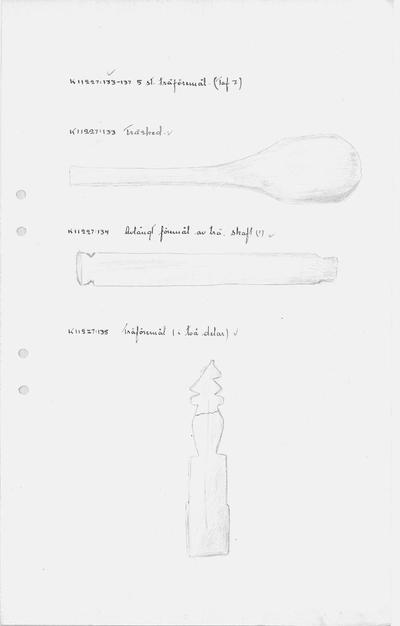 K11227:133-137 5 st. träföremål (Taf 7)
K11227:133 Träsked
K11227:134 Avlångt föremål av trä. skaft (?)
K11227:135 Träföremål (i två delar)